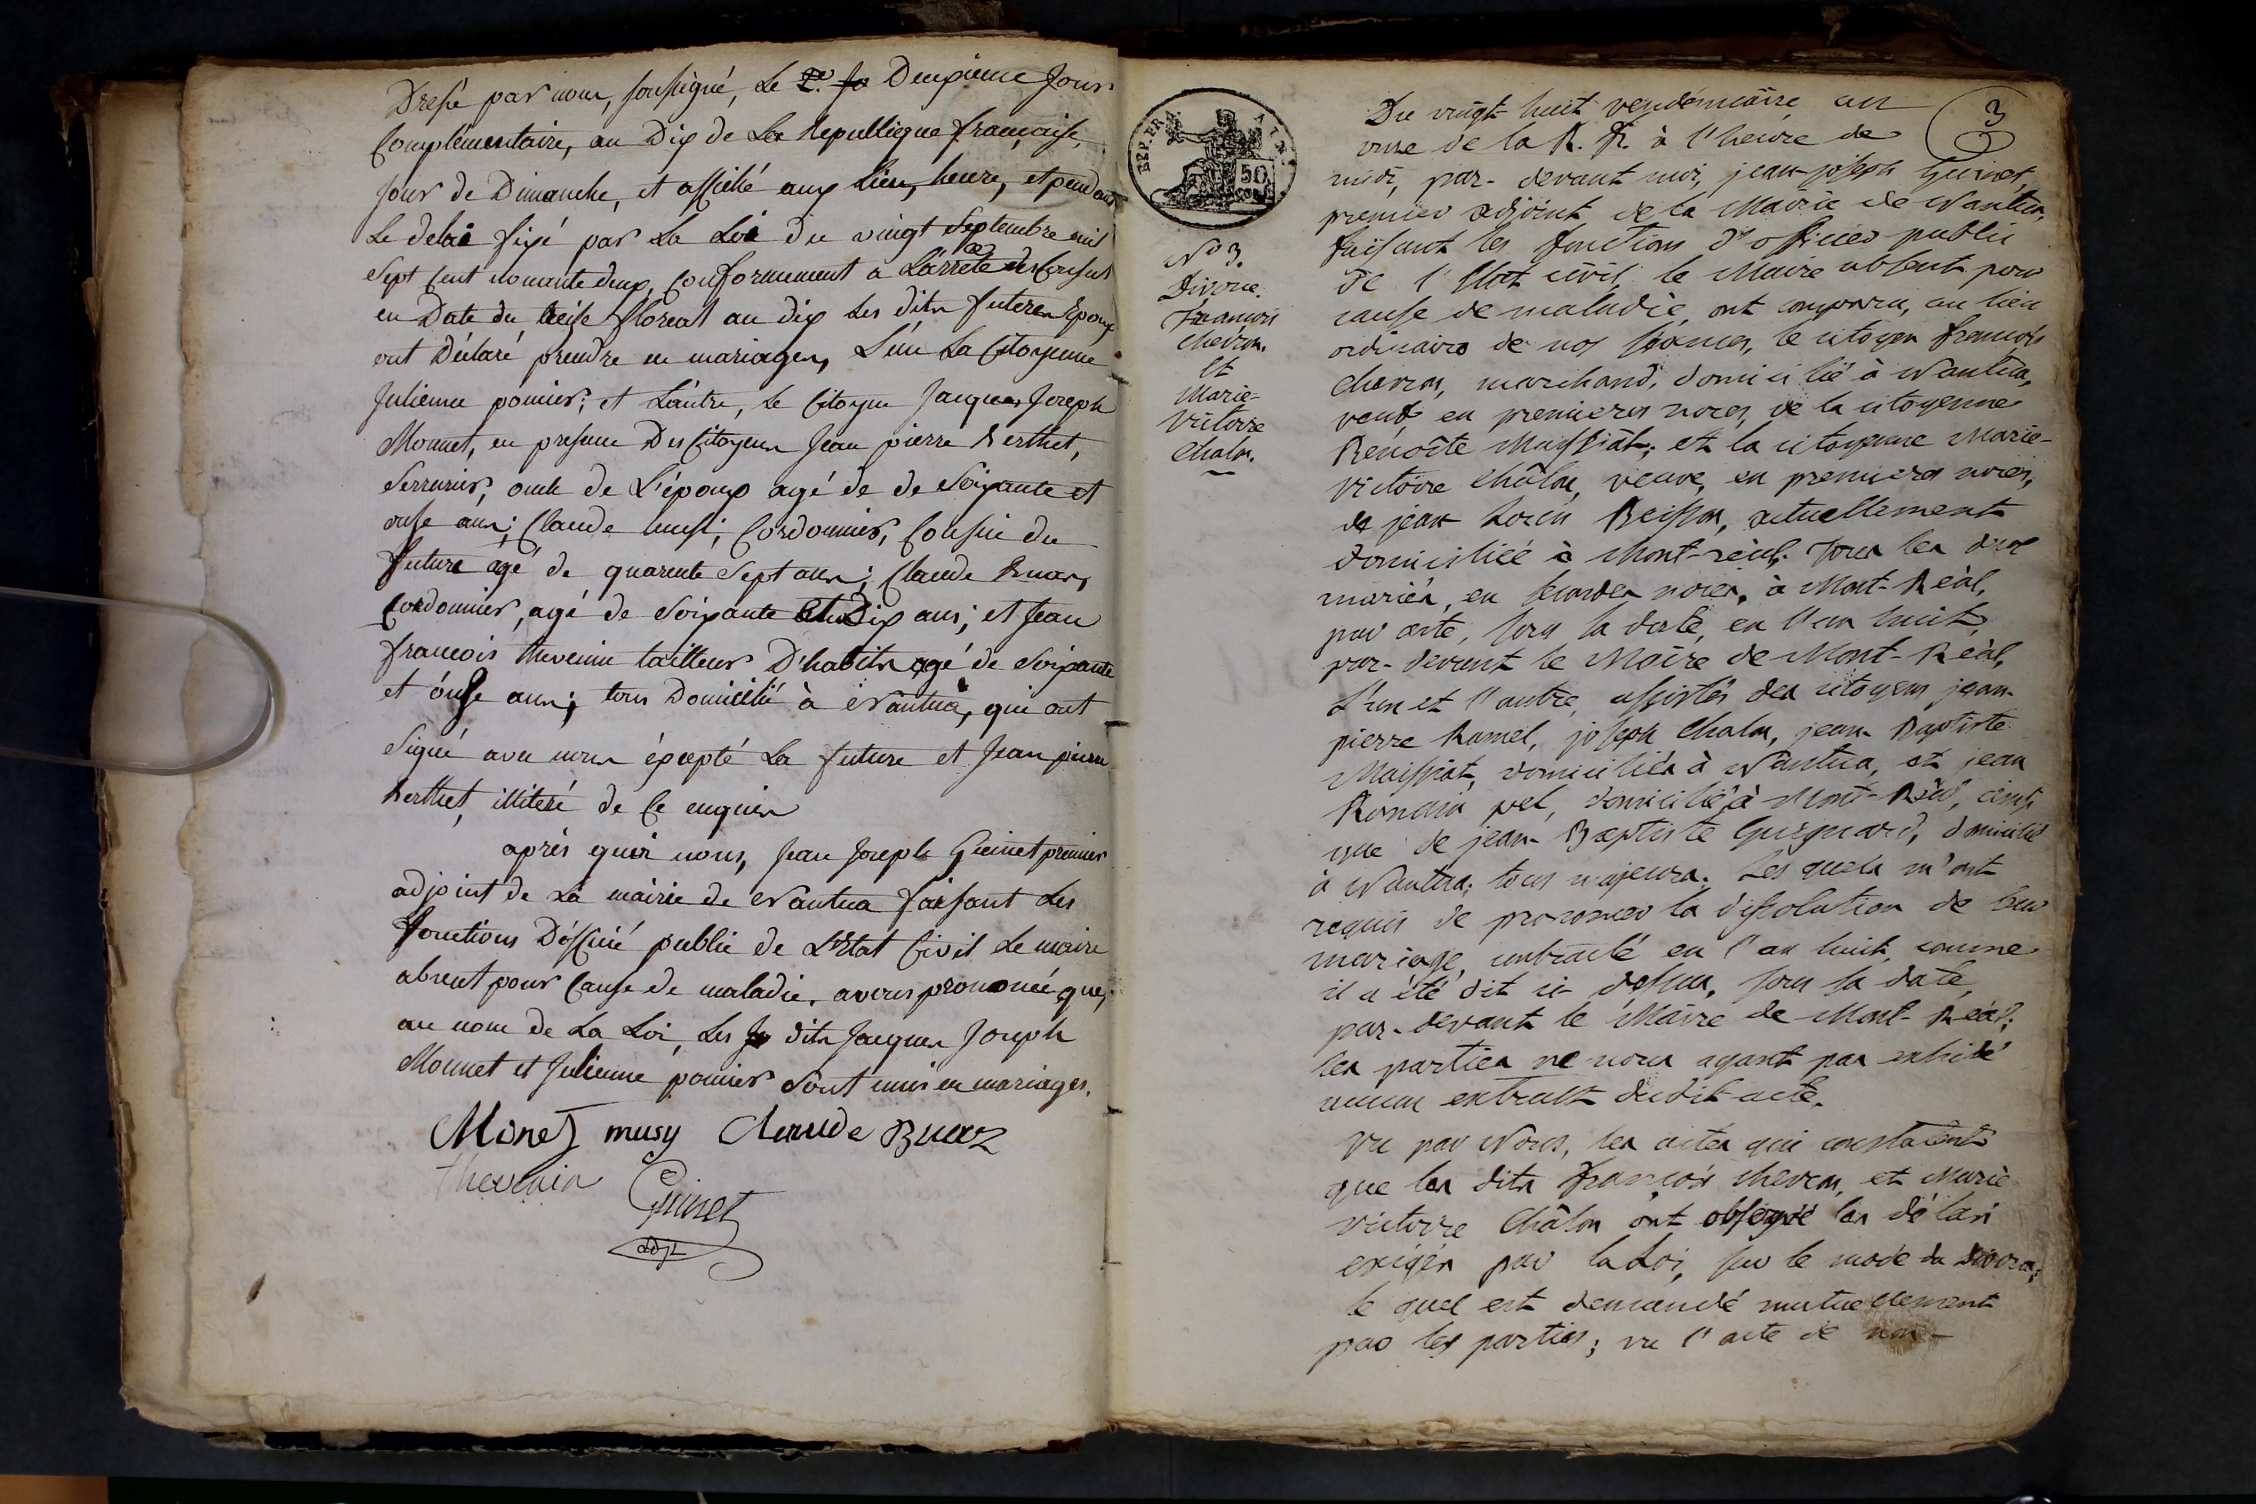 Dressé par nous, soussigné, Le 2e. Jo Deuxieme Jour
Complémentaire, an Dix de La Republieque française,
Jour de Dimanche, et affiché aux lieu, heure, et pendant
Le delai fixé par La Loi du vingt Septembre mil
Sept Cent nonante deux, Conformement a L'arrêté des Consuls
en Date du treise floreal an dix Les dits futeres Epoux
ont Déclaré prendre en mariages, L'un La Citoyenne
Julienne ponnier; et L'autre, Le Citoyen Jacques Joseph
Monnet, en presence Des Citoyens Jean pierre Berthet,
Serrurier, oncle de L'époux agé de de Soixante et
onse ans; Claude Musi, Cordonnier, Cousin du
future agé de quarente Sept ans; Claude Buaz,
Cordonnier, agé de Soixante et Dix ans; et Jean
françois thevenin tailleur D'habits agé de Soixante
et onse ans; tous Domicilié à Nantua, qui ont
Signé avec nous éxcepté La future et Jean pierre
Berthet, illiteré de Ce enquis
après quoi nous, Jean Joseph Guinet premier
adjoint de La mairie de Nantua faisant Les
fonctions D'officié public de L'Etat Civil Le maire
absent pour Cause de maladie, avons prononcé que,
au nom de La Loi, Les dits Jacques Joseph
Monnet et Julienne ponnier Sont unis en mariages.
Monet musy Claude Buaz
thevenin Guinet
adjt
REP. FRA. AIN.
50
3
No 3.
Divorce.
françois
chevron.
et
Marie-
Victoire
Chalon.
Du vingt-huit vendémiaire an
onze de la R. F. à l'heure de
midi, par-devant moi, jean-joseph Guinet,
premier adjoint de la Mairie de Nantua,
faisant les fonctions d'officier public
de l'Etat civil, le Maire absent pour
cause de maladie, ont comparu, au lieu
ordinaire de nos séances, le citoyen françois
chevron, marchand, domicilié à Nantua,
veuf, en premieres noces, de la citoyenne
Benoîte Maissiat; et la citoyenne Marie-
Victoire Châlon, veuve, en premieres noces,
de jean Louis Beisson, actuellement
domiciliée à Mont-réal. Tous les deux
mariés, en secondes noces, à Mont-Réal,
par acte, sous sa date, en l'an huit,
par-devant le Maire de Mont-Réal,
L'un et l'autre, assistés des citoyens jean-
pierre Ramel, joseph Chalon, jean-Baptiste
Maissiat, domiciliés à Nantua, et jean
Romain pel, domicilié à Mont-Réal, ainsi
que de jean-Baptiste Guignard, domicilié
à Nantua; tous majeurs. Les quels m'ont
requis de prononcer la dissolution de leur
mariage, contracté en l'an huit, comme
il a été dit ci-dessus, sous sa date,
par-devant le Maire de Mont-Réal;
les parties ne nous ayant pas exhibé
aucun extrait dudit acte.
Vu par Nous, les actes qui constatent
que les dits françois chevron, et Marie
victoire Châlon ont observé les délais
exigés par la Loi, sur le mode du Divorce,
le quel est demandé mutuellement
par les parties; vu l'acte de non-